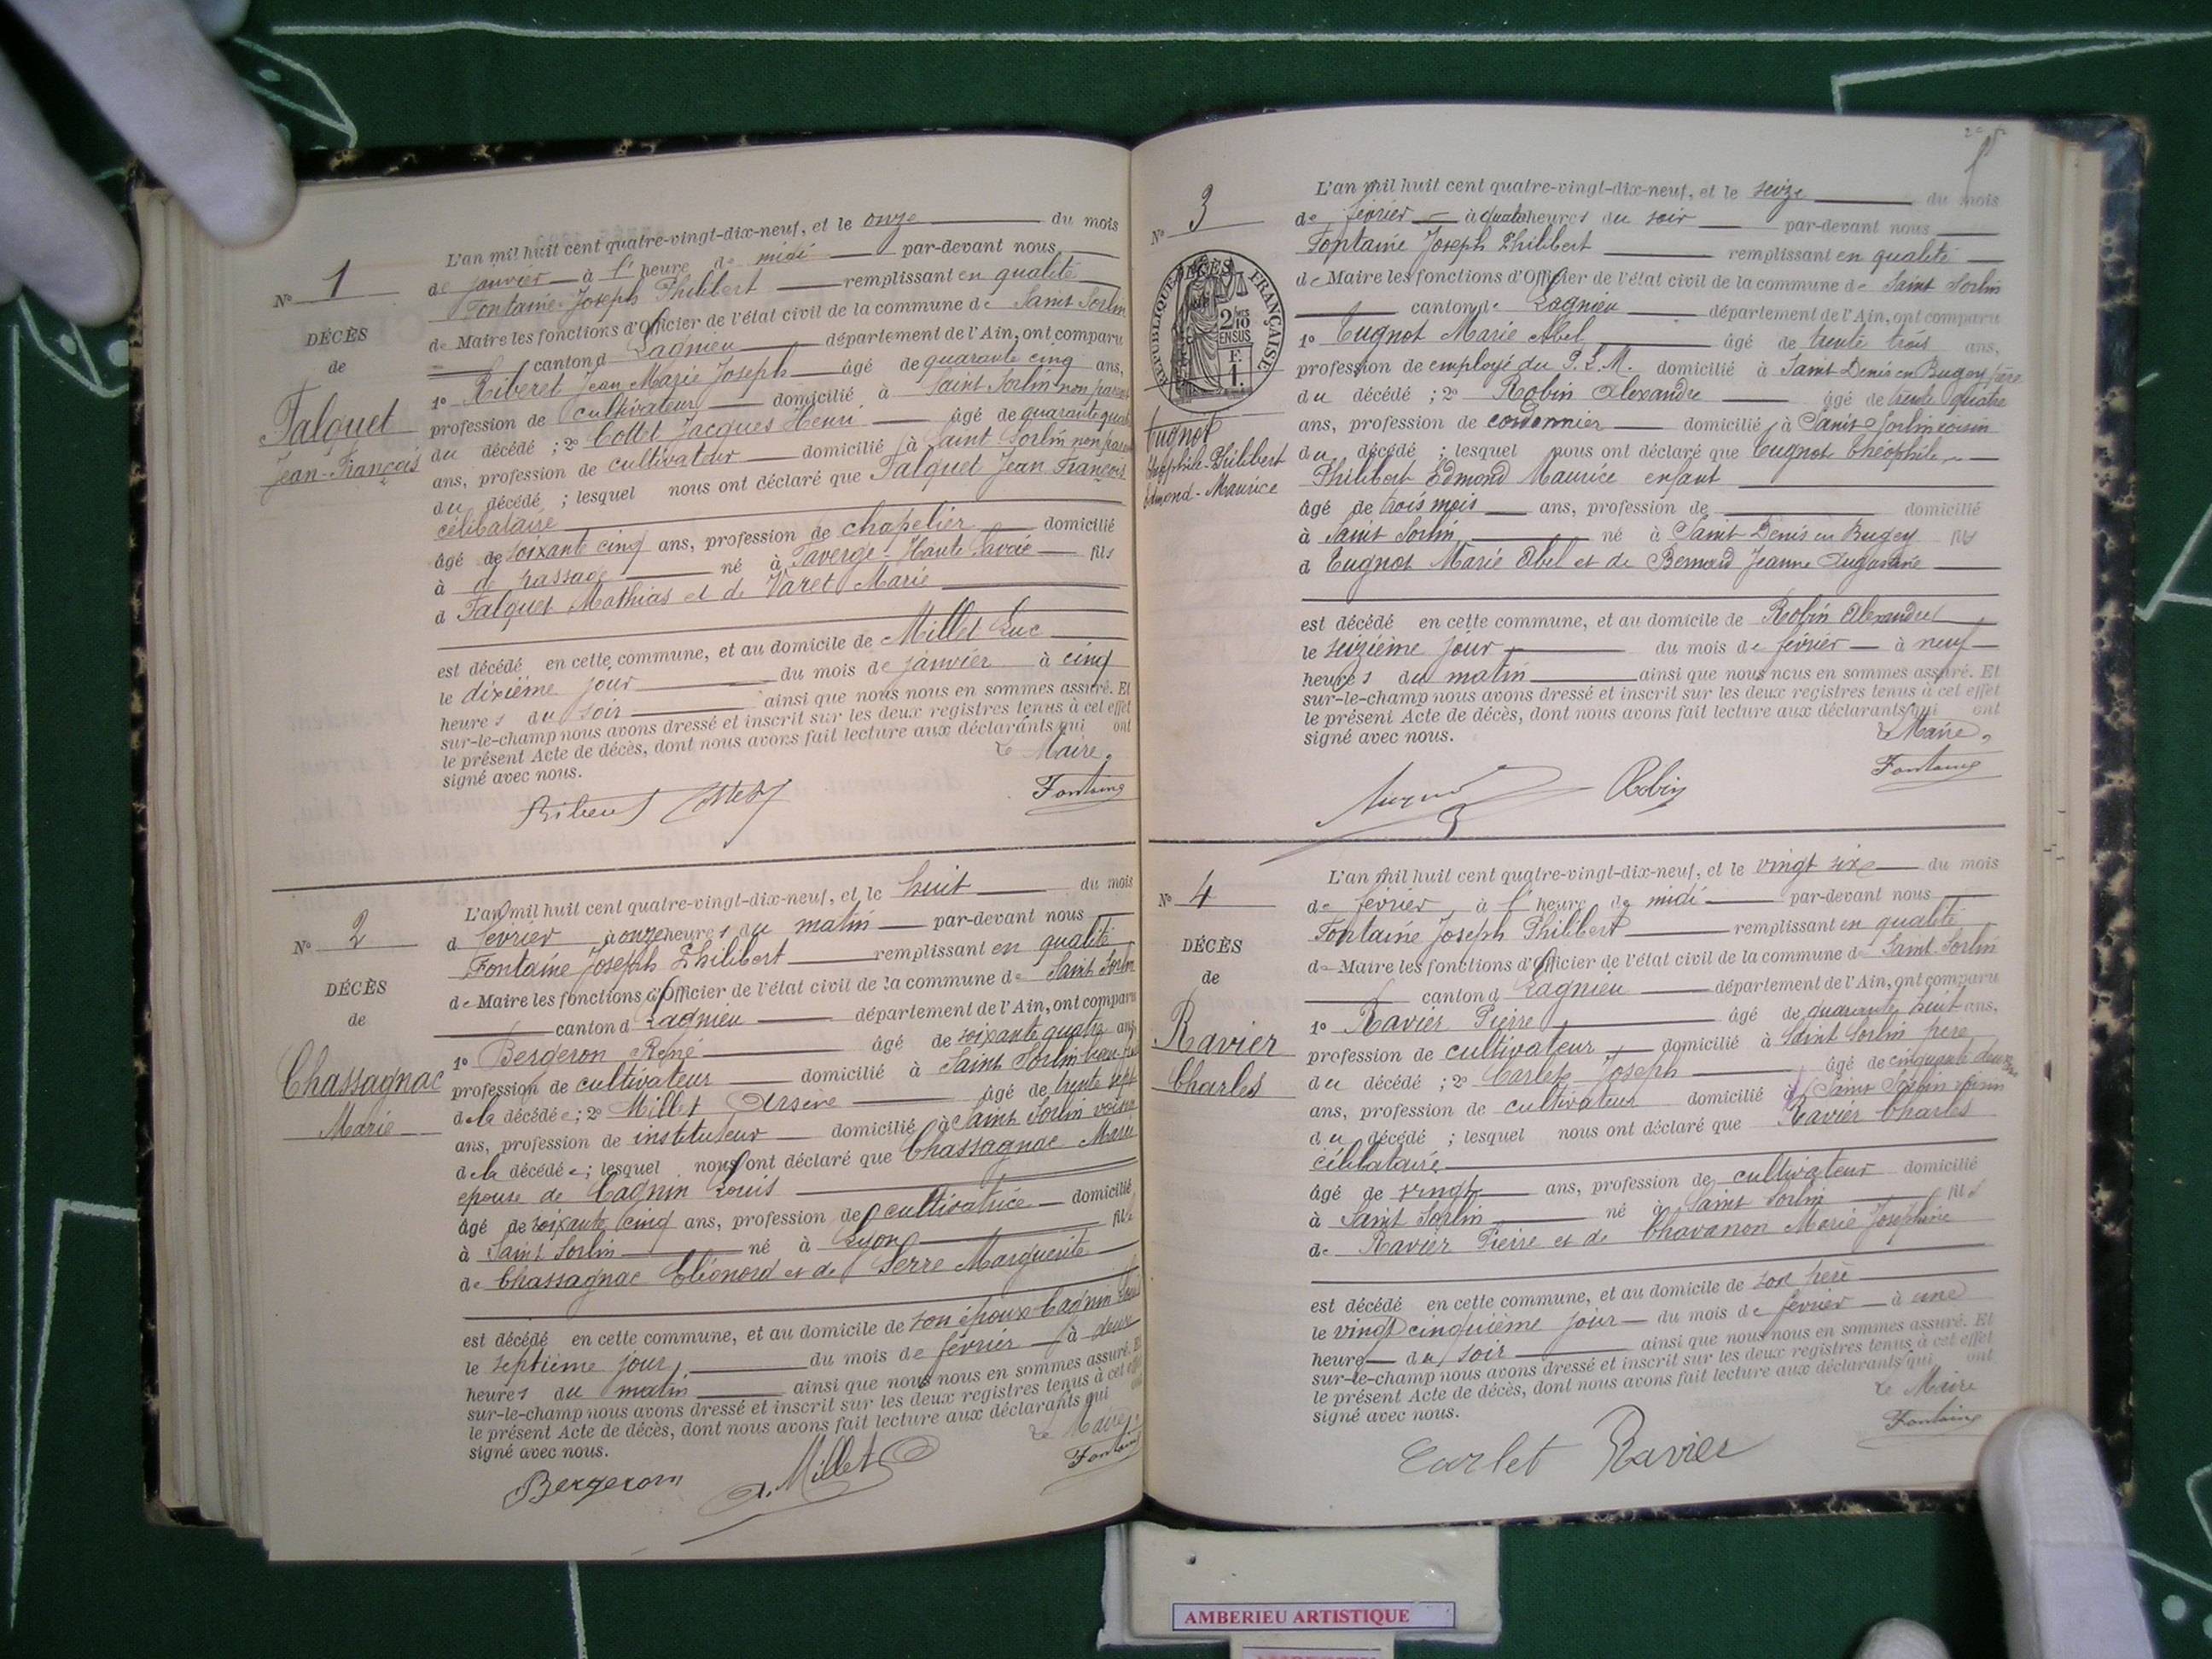 N° 1
DÉCÈS
de
Falquet
Jean-François
L'an mil huit cent quatre-vingt-dix-neuf, et le onze du mois
de janvier à l' heure de midi par-devant nous
Fontaine Joseph Philibert remplissant en qualité
de Maire les fonctions d'Officier de l'état civil de la commune de Saint Sorlin
canton d Lagnieu département de l'Ain, ont comparu
1° Riberet Jean Marie Joseph âgé de quarante cinq ans,
profession de cultivateur domicilié à Saint Sorlin non parent
du décédé ; 2° Cottet Jacques Henri âgé de quarante quatre
ans, profession de cultivateur domicilié à Saint Sorlin non parent
du décédé ; lesquel nous ont déclaré que Falquet Jean François
célibataire
âgé de soixante cinq ans, profession de chapelier domicilié
à de passage né à Faverge - Haute Savoie fils
d Falquet Mathias et de Varet Marie
est décédé en cette commune, et au domicile de Millet Luc
le dixième jour du mois de janvier à cinq
heures du soir ainsi que nous nous en sommes assuré. Et
sur-le-champ nous avons dressé et inscrit sur les deux registres tenus à cet effet
le présent Acte de décès, dont nous avons fait lecture aux déclarants qui ont
signé avec nous.
Le Maire,
Riberet Cottet Fontaine
N° 2
DÉCÈS
de
Chassagnac
Marie
L'an mil huit cent quatre-vingt-dix-neuf, et le huit du mois
d fevrier à onze heures du matin par-devant nous
Fontaine Joseph Philibert remplissant en qualité
de Maire les fonctions d'Officier de l'état civil de la commune de Saint Sorlin
canton d Lagnieu département de l'Ain, ont comparu
1° Bergeron René âgé de soixante quatre ans
profession de cultivateur domicilié à Saint Sorlin beau-
de la décédée ; 2° Millet Arsene âgé de trente sept
ans, profession de instituteur domicilié à Saint Sorlin voisin
de la décédée ; lesquel nous ont déclaré que Chassagnac Marie
epouse de Cagnin Louis
âgé de soixante cinq ans, profession de cultivatrice domicilié
à Saint Sorlin né à Lyon fille
de Chassagnac Eléonord et de Serre Marguerite
est décédé en cette commune, et au domicile de son époux Cagnin Louis
le septième jour du mois de février à deux
heures du matin ainsi que nous nous en sommes assuré. Et
sur-le-champ nous avons dressé et inscrit sur les deux registres tenus à cet effet
le présent Acte de décès, dont nous avons fait lecture aux déclarants qui ont
signé avec nous.
Le Maire,
Bergeron A. Millet Fontaine
N° 3
RÉPUBLIQUE FRANÇAISE
2/10 EN SUS
F. 1.
Cugnot
Théophile-Philibert
Edmond-Maurice
L'an mil huit cent quatre-vingt-dix-neuf, et le seize du mois
de février à quatre heures du soir par-devant nous
Fontaine Joseph Philibert remplissant en qualité
de Maire les fonctions d'Officier de l'état civil de la commune de Saint Sorlin
canton de Lagnieu département de l'Ain, ont comparu
1° Cugnot Marie Abel âgé de trente trois ans,
profession de employé du P. L. M. domicilié à Saint Denis en Bugey père
du décédé ; 2° Robin Alexandre âgé de trente quatre
ans, profession de cordonnier domicilié à Saint Sorlin cousin
du décédé ; lesquel nous ont déclaré que Cugnot Théophile
Philibert Edmond Maurice enfant
âgé de trois mois ans, profession de domicilié
à Saint Sorlin né à Saint-Denis en Bugey fils
d Cugnot Marie Abel et de Bernard Jeanne
est décédé en cette commune, et au domicile de Robin Alexandre
le seizième jour du mois de février à neuf
heures du matin ainsi que nous nous en sommes assuré. Et
sur-le-champ nous avons dressé et inscrit sur les deux registres tenus à cet effet
le présent Acte de décès, dont nous avons fait lecture aux déclarants qui ont
signé avec nous.
Le Maire,
Cugnot Robin Fontaine
N° 4
DÉCÈS
de
Ravier
Charles
L'an mil huit cent quatre-vingt-dix-neuf, et le vingt six du mois
de février à l' heure de midi par-devant nous
Fontaine Joseph Philibert remplissant en qualité
de Maire les fonctions d'Officier de l'état civil de la commune de Saint Sorlin
canton d Lagnieu département de l'Ain, ont comparu
1° Ravier Pierre âgé de quarante huit ans,
profession de cultivateur domicilié à Saint Sorlin père
du décédé ; 2° Carlet Joseph âgé de cinquante deux
ans, profession de cultivateur domicilié à Saint Sorlin voisin
du décédé ; lesquel nous ont déclaré que Ravier Charles
célibataire
âgé de vingt ans, profession de cultivateur domicilié
à Saint Sorlin né à Saint Sorlin fils
de Ravier Pierre et de Chavanon Marie Joséphine
est décédé en cette commune, et au domicile de son père
le vingt cinquième jour du mois de fevrier à une
heure du soir ainsi que nous nous en sommes assuré. Et
sur-le-champ nous avons dressé et inscrit sur les deux registres tenus à cet effet
le présent Acte de décès, dont nous avons fait lecture aux déclarants qui ont
signé avec nous.
Le Maire
Carlet Ravier Fontaine
AMBERIEU ARTISTIQUE